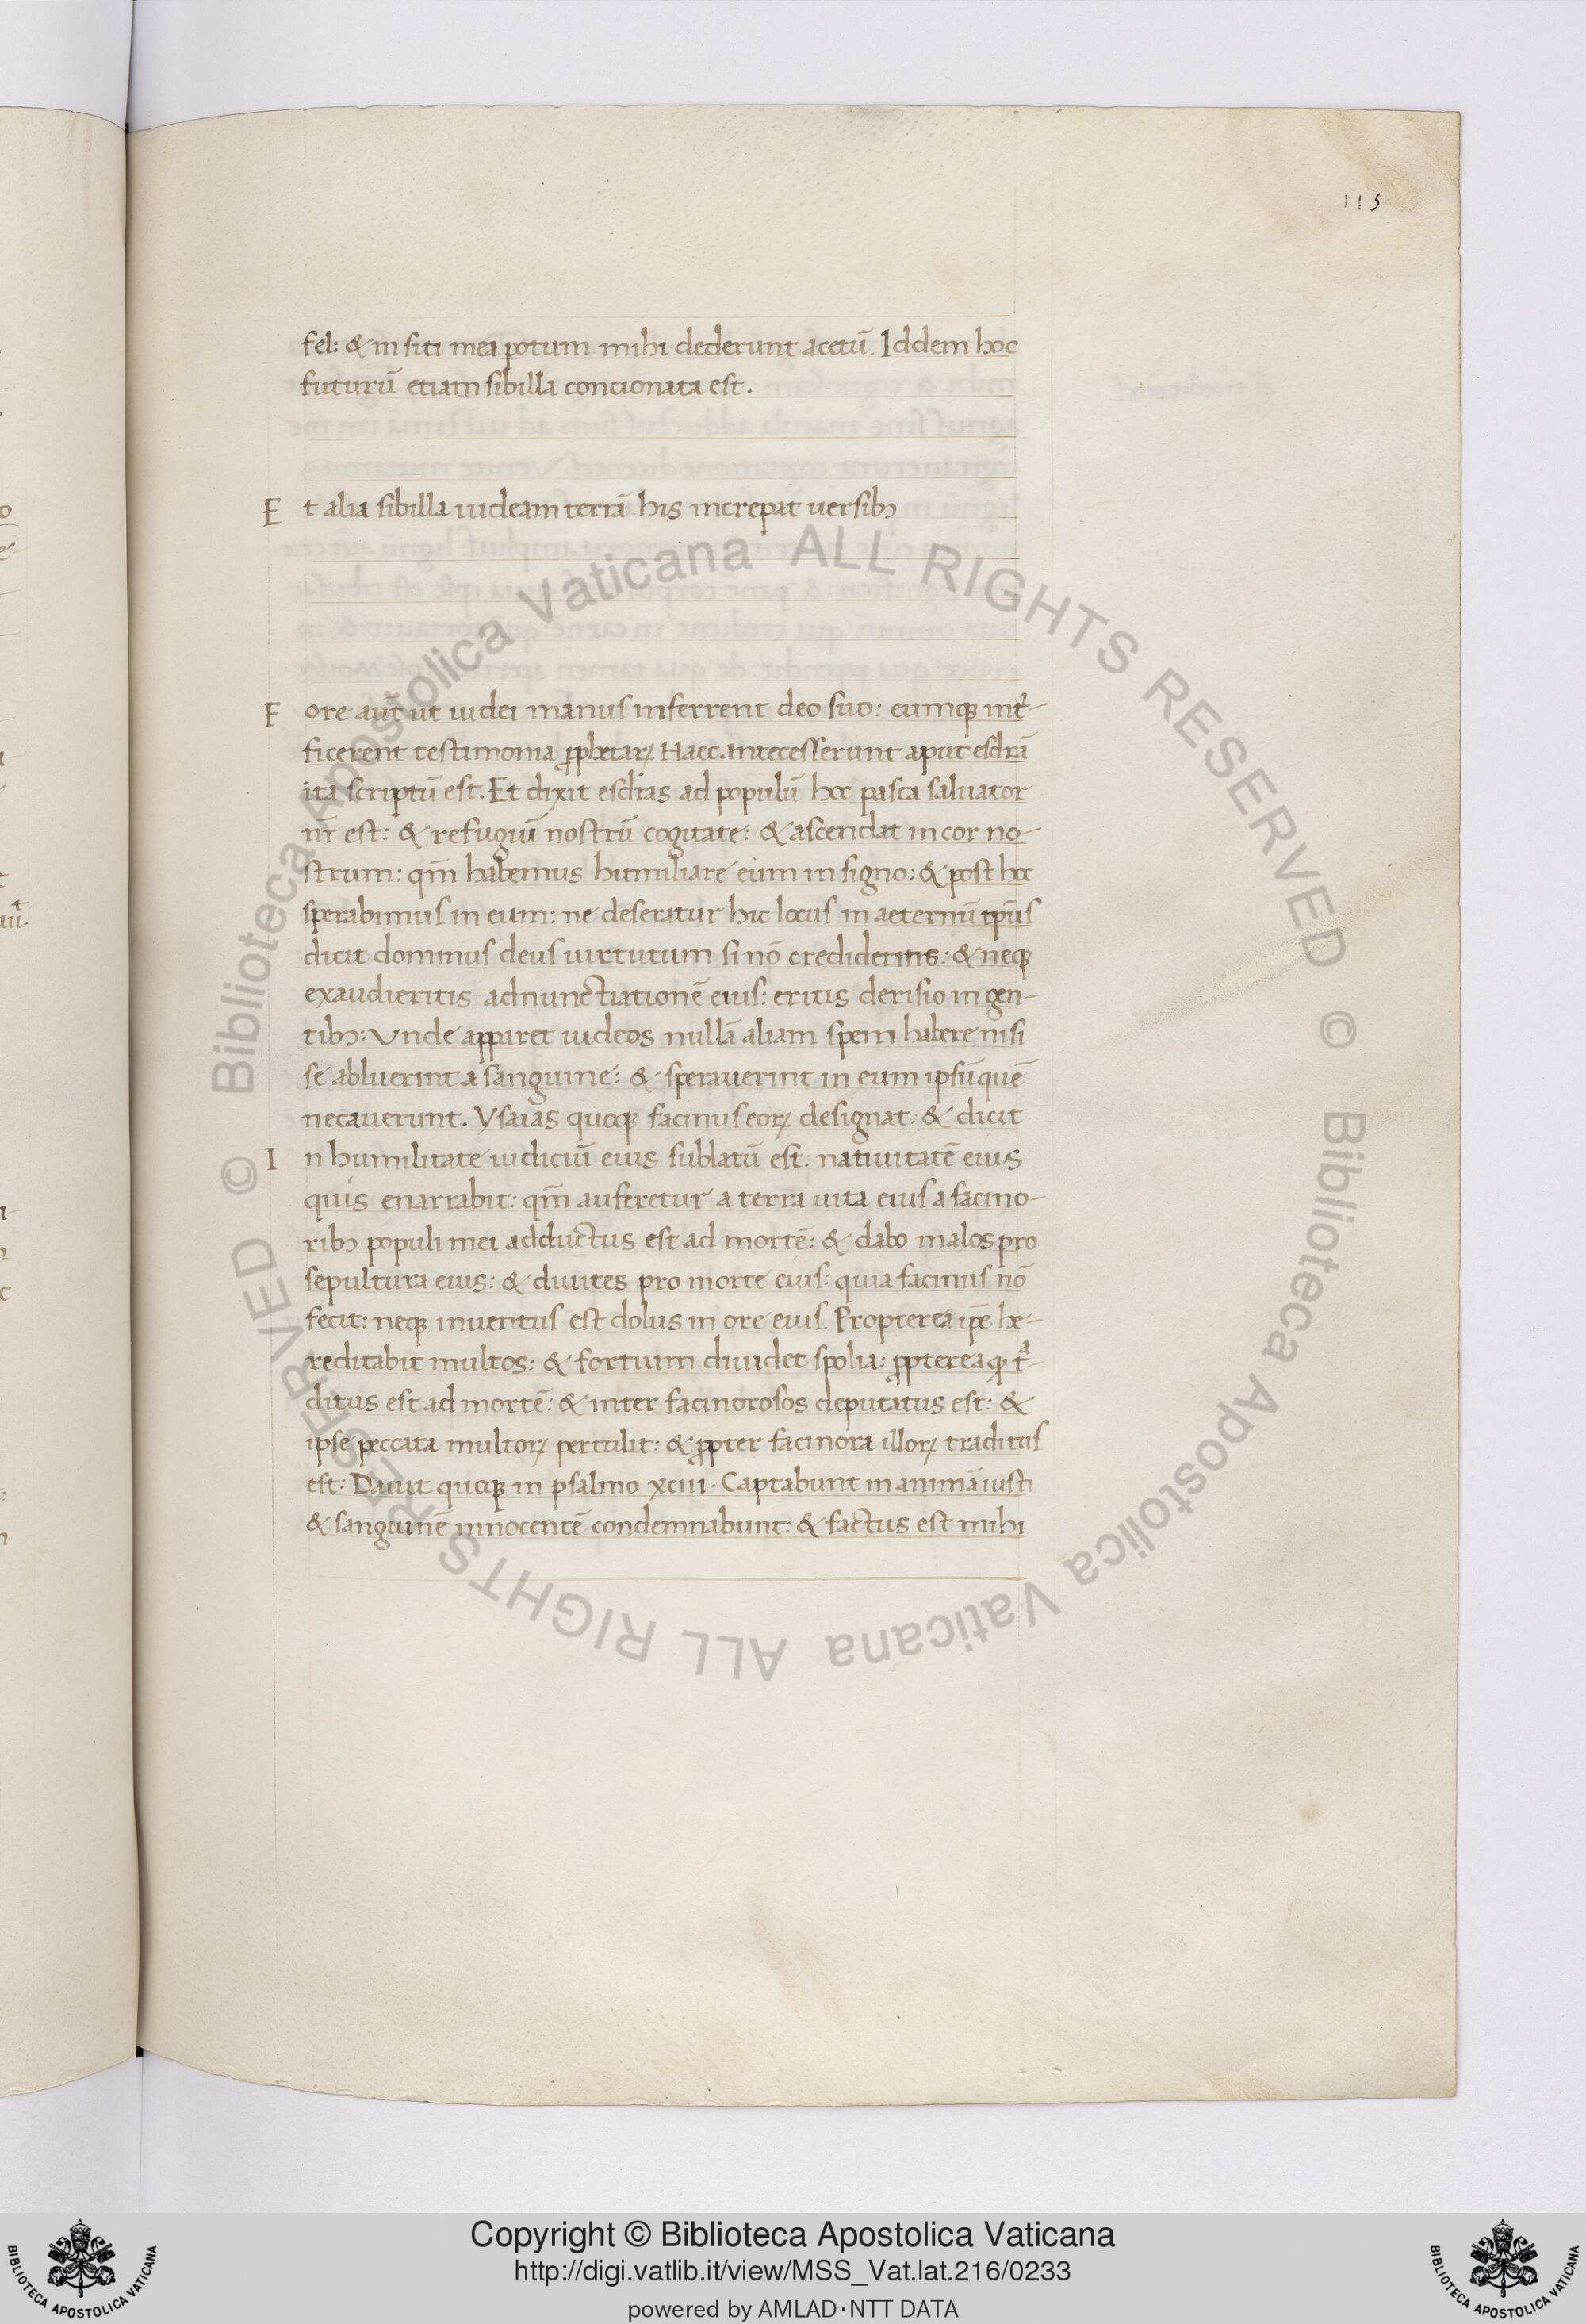 115
fel: & in siti mea potum mihi dederunt acetū. Iddem hoc
futurū etiam sibilla concionata est.
Et alia sibilla iudeam terrā his increpat uersibꝫ
Fore aut̄ ut iudei manus inferrent deo suo: eumqꝫ int̉-
ficerent testimonia ꝓphetaꝝ Haec antecesserunt aput esdrā
ita scriptū est. Et dixit esdras ad populū hoc pasca saluator
nr̄ est: & refugiū nostrū cogitate: & ascendat in cor no-
strum: qm̄ habemus humiliare eum in signo: & post hoc
sperabimus in eum: ne deseratur hic locus in aeternū tp̄us
dicit dominus deus uirtutum si nō credideritis: & neqꝫ
exaudieritis adnunctiationē eius: eritis derisio in gen-
tibꝫ: Vnde apparet iudeos nullā aliam spem habere nisi
se abluerint a sanguine: & sperauerint in eum ipsū quē
necauerunt. Ysaias quoqꝫ facinus eoꝝ designat. & dicit
In humilitate iudiciū eius sublatū est: natiuitatē eius
quis enarrabit: qm̄ auferetur a terra uita eius a facino-
ribꝫ populi mei adductus est ad mortē: & dabo malos pro
sepultura eius: & diuites pro morte eius: quia facinus nō
fecit: neqꝫ inuentus est dolus in ore eius. Propterea ip̄e he-
reditabit multos: & fortium diuidet spolia: ꝓpterea qꝫ tͣ-
ditus est ad mortē: & inter facinorosos deputatus est: &
ipse peccata multoꝝ pertulit: & ꝓpter facinora illoꝝ traditus
est: Dauit quoqꝫ in psalmo xciii. Captabunt in animā iusti
& sanguinē innocentē condemnabunt: & factus est mihi
© Biblioteca Apostolica Vaticana ALL RIGHTS RESERVED © Biblioteca Apostolica Vaticana ALL RIGHTS RESERVED
Copyright © Biblioteca Apostolica Vaticana
http://digi.vatlib.it/view/MSS_Vat.lat.216/0233
powered by AMLAD·NTT DATA
BIBLIOTECA APOSTOLICA VATICANA
BIBLIOTECA APOSTOLICA VATICANA